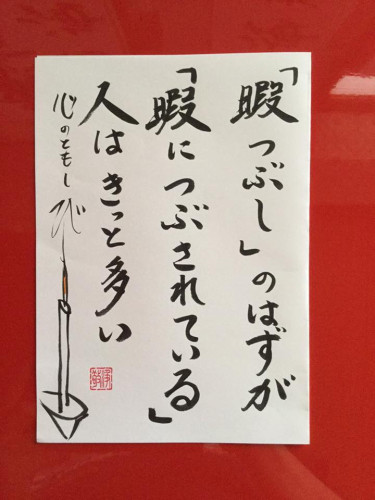 「暇つぶし」のはずが
「暇につぶされている」
人はきっと多い
心のともしび